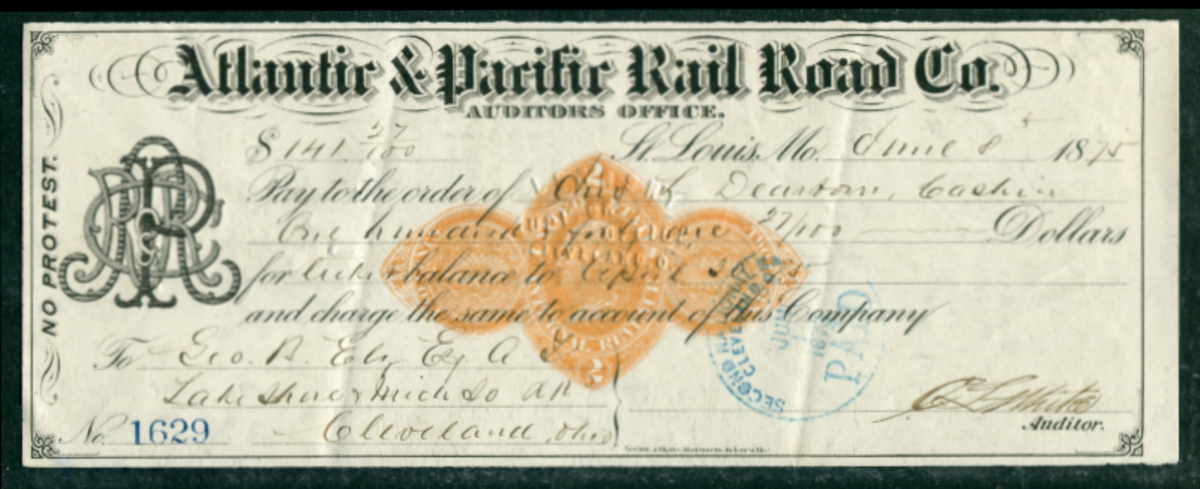 Atlantic & Pacific Rail Road Co.
AUDITORS OFFICE.
NO PROTEST.
$ 141 27/100 St. Louis, Mo. June 8 1875
Pay to the order of Dearborn, Cashier
One hundred & forty one 27/100 Dollars
for balance to April
and charge the same to account of this Company
To Geo. B. Ely, Esq. A
Lake Shore & Mich So RR
Cleveland, Ohio
No. 1629
Auditor.
SECOND NATIONAL
CLEVELAND
JUN
PAID
2
2